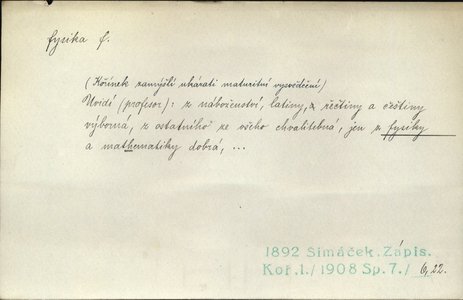 fysika f.
(Kořínek zamýšlí ukázati maturitní vysvědčení)
(profesor): z náboženství, latiny, z řečtiny a češtiny
výborná, z ostatního ze všeho chvalitebná, jen z fysiky
a mathematiky dobrá, ...
1892 Šimáček. Zápis.
Koř.1./1908 Sp.7./ 22.